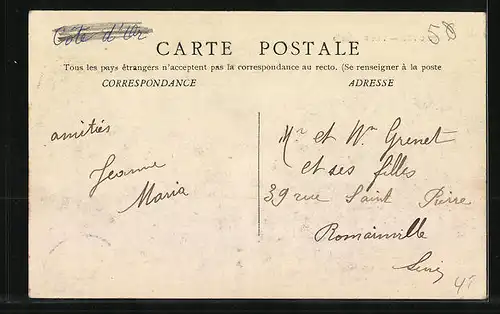 Côte d'Or
58
CARTE POSTALE
Tous les pays étrangers n'acceptent pas la correspondance au recto. (Se renseigner à la poste
CORRESPONDANCE
ADRESSE
amitiés
Jeanne
Maria
Mr et Mme Grenet
et ses filles
39 rue Saint Pierre
Romainville
Seine